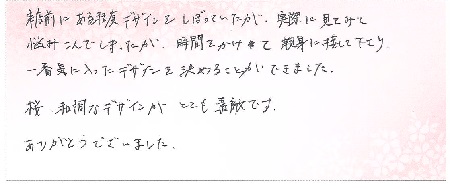 来店前にある程度デザインをしぼっていたが、実際に見てみて
悩みこんでしまったが、時間をかけて親身に接して下さり
一番気に入ったデザインを決めることができました。
桜 和調なデザインが とても素敵です。
ありがとうございました。